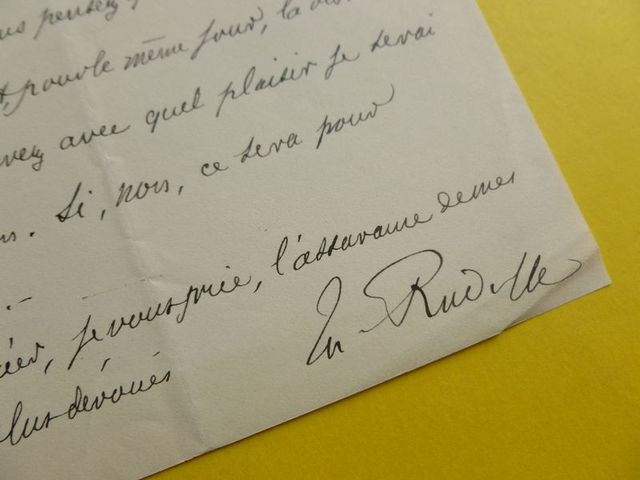 pensez
pour le même jour, la
avec quel plaisir je serai
. Si, non, ce sera pour
.-
je vous prie, l'assurance de mes
plus dévoués